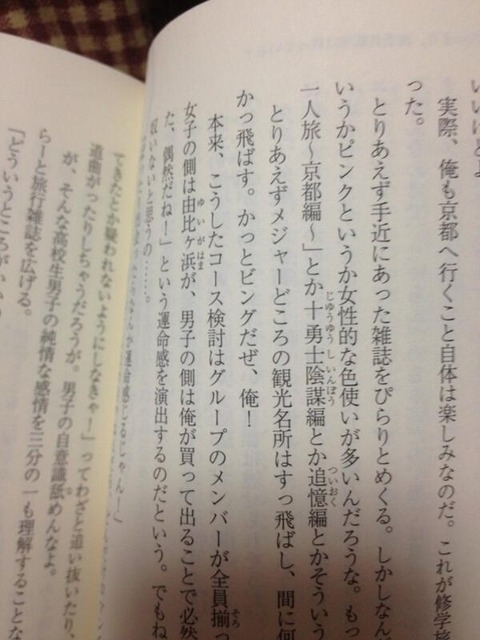 いいけどよ
実際、俺も京都へ行くこと自体は楽しみなのだ。これが修学旅
った。
とりあえず手近にあった雑誌をぴらりとめくる。しかしなん
いうかピンクというか女性的な色使いが多いんだろうな。もっ
一人旅〜京都編〜」とか十勇士陰謀編とか追憶編とかそういう
じゅうゆうし いんぼう
ついおく
とりあえずメジャーどころの観光名所はすっ飛ばし、間に何
かっ飛ばす。かっとビングだぜ、俺!
本来、こうしたコース検討はグループのメンバーが全員揃っ
そろ
女子の側は由比ヶ浜が、男子の側は俺が買って出ることで必然
ゆいがはま
た、偶然だね!」という運命感を演出するのだという。でもね
ないと思うの……。
なんか運命感じるじゃん!」
てきたとか疑われないようにしなきゃ!」ってわざと追い抜いたり、
道曲がったりしちゃうだろうが。男子の自意識舐めんなよ。
な
が、そんな高校生男子の純情な感情を三分の一も理解することな
らーと旅行雑誌を広げる。
「どういうところが